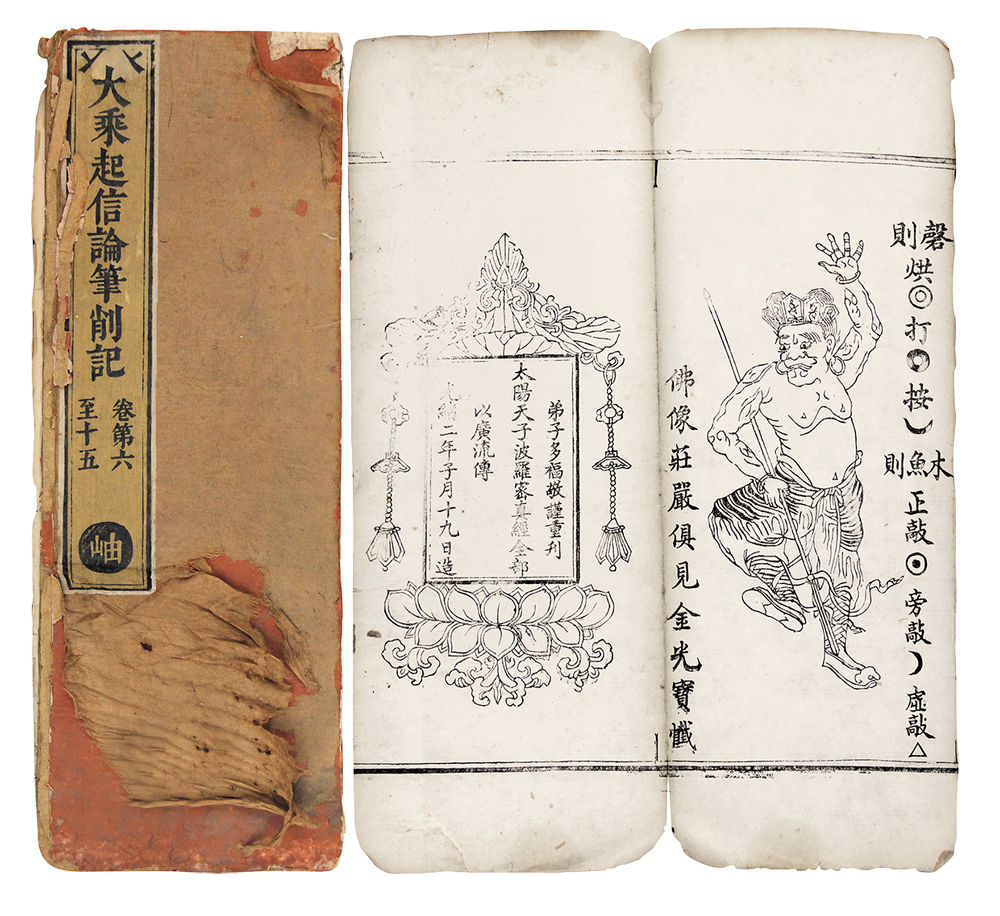 大乘起信論筆削記
卷第六
至十五
岫
磬則
烘◎打◐按）
木魚則
正敲◉旁敲）虛敲△
佛像莊嚴俱見金光寶懺
弟子多福敬謹重刊
太陽天子波羅密真經全部
以廣流傳
光緒二年子月十九日造